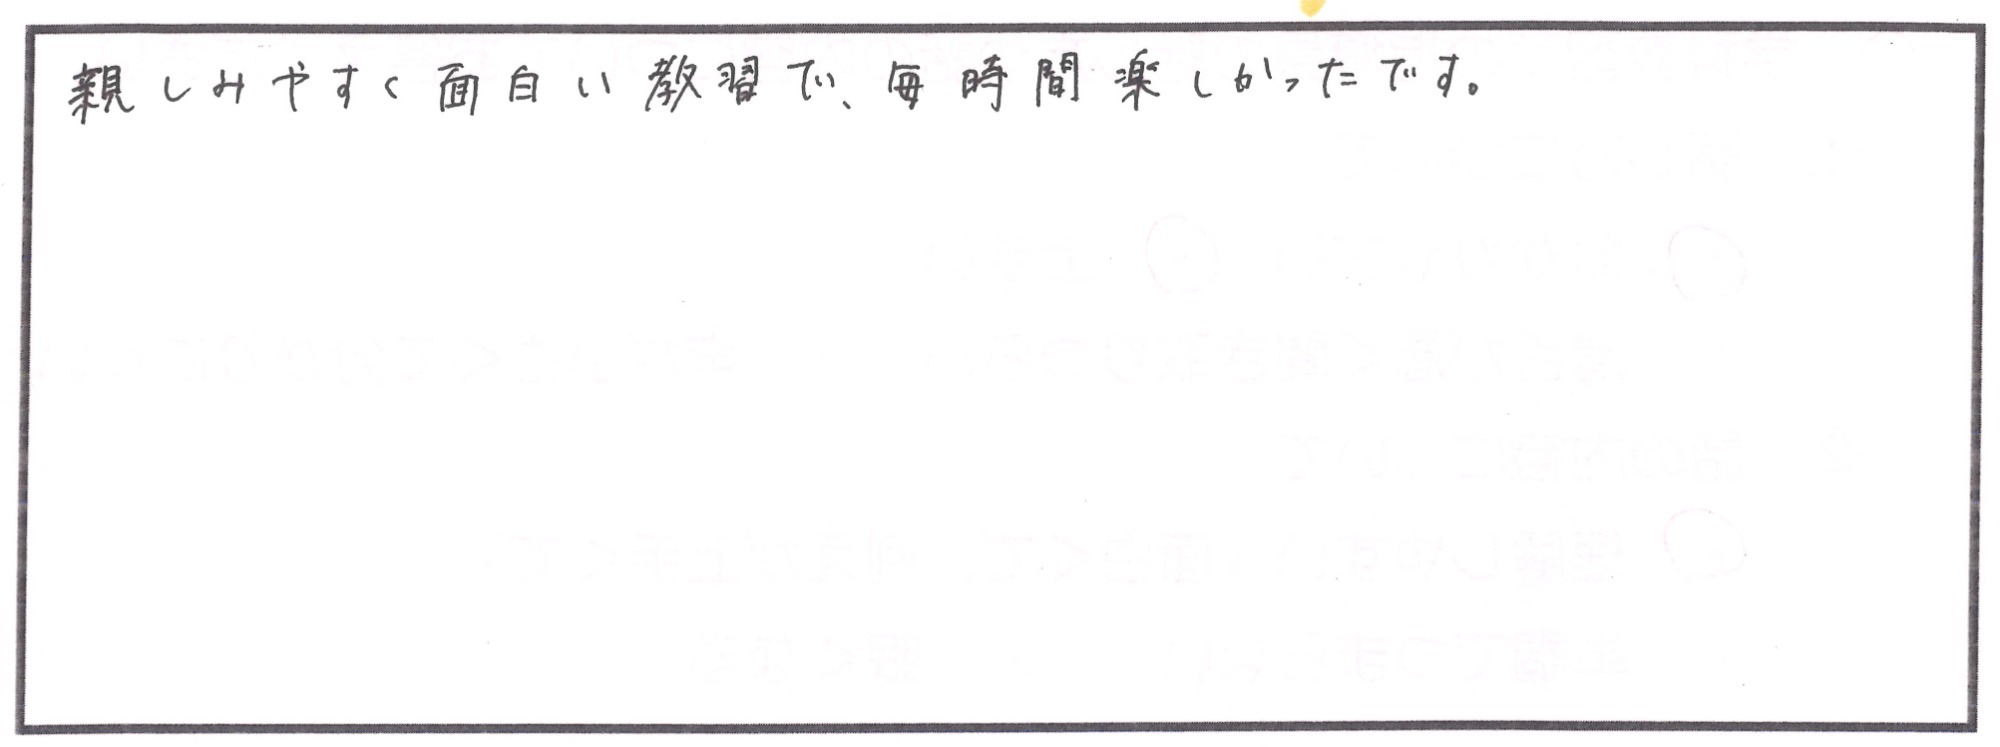 親しみやすく面白い教習で、毎時間楽しかったです。